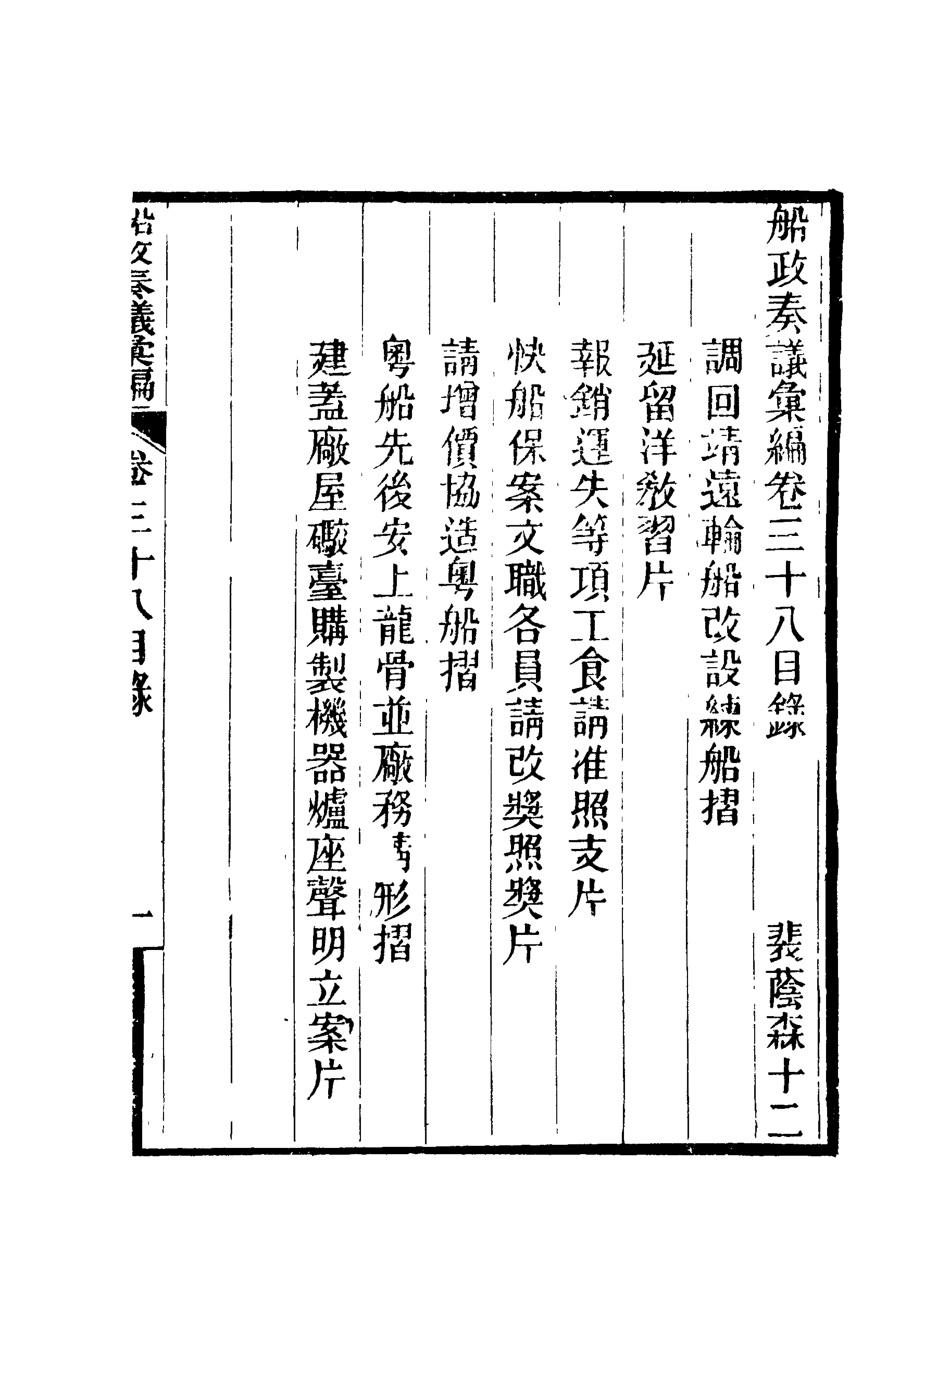 船政奏議彙編卷三十八目錄 裴蔭森十二
調回靖遠輪船改設練船摺
延留洋敎習片
報銷運失等項工食請准照支片
快船保案文職各員請改獎照獎片
請增價協造粵船摺
粵船先後安上龍骨並廠務情形摺
建蓋廠屋礮臺購製機器爐座聲明立案片
船政奏議彙編 卷三十八目錄 一